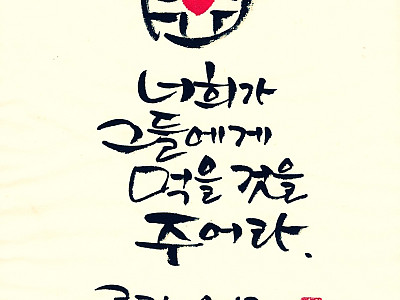 너희가
그들에게
먹을 것을
주어라.